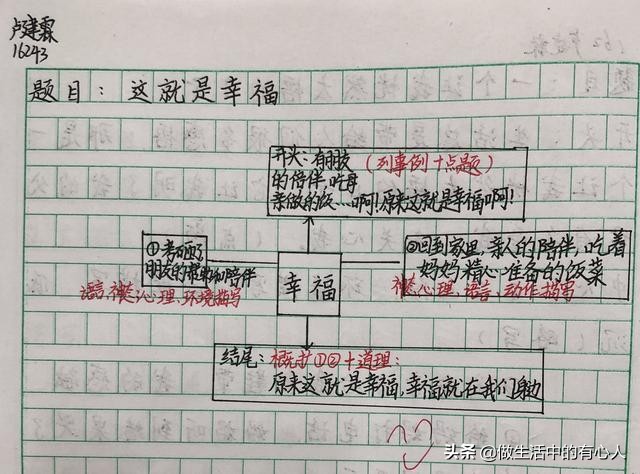 卢建霖
16243
题目：这就是幸福
开头：有朋友（列事例十点题）
的陪伴，吃母
亲做的饭……啊！原来这就是幸福啊！
①考砸了
朋友的鼓励和陪伴
语言、神态、心理、环境描写
幸福
②回到家里，亲人的陪伴，吃着
妈妈精心准备的饭菜
神态、心理、语言、动作描写
结尾：概括①②十道理：
原来这就是幸福，幸福就在我们身边
头条 @做生活中的有心人